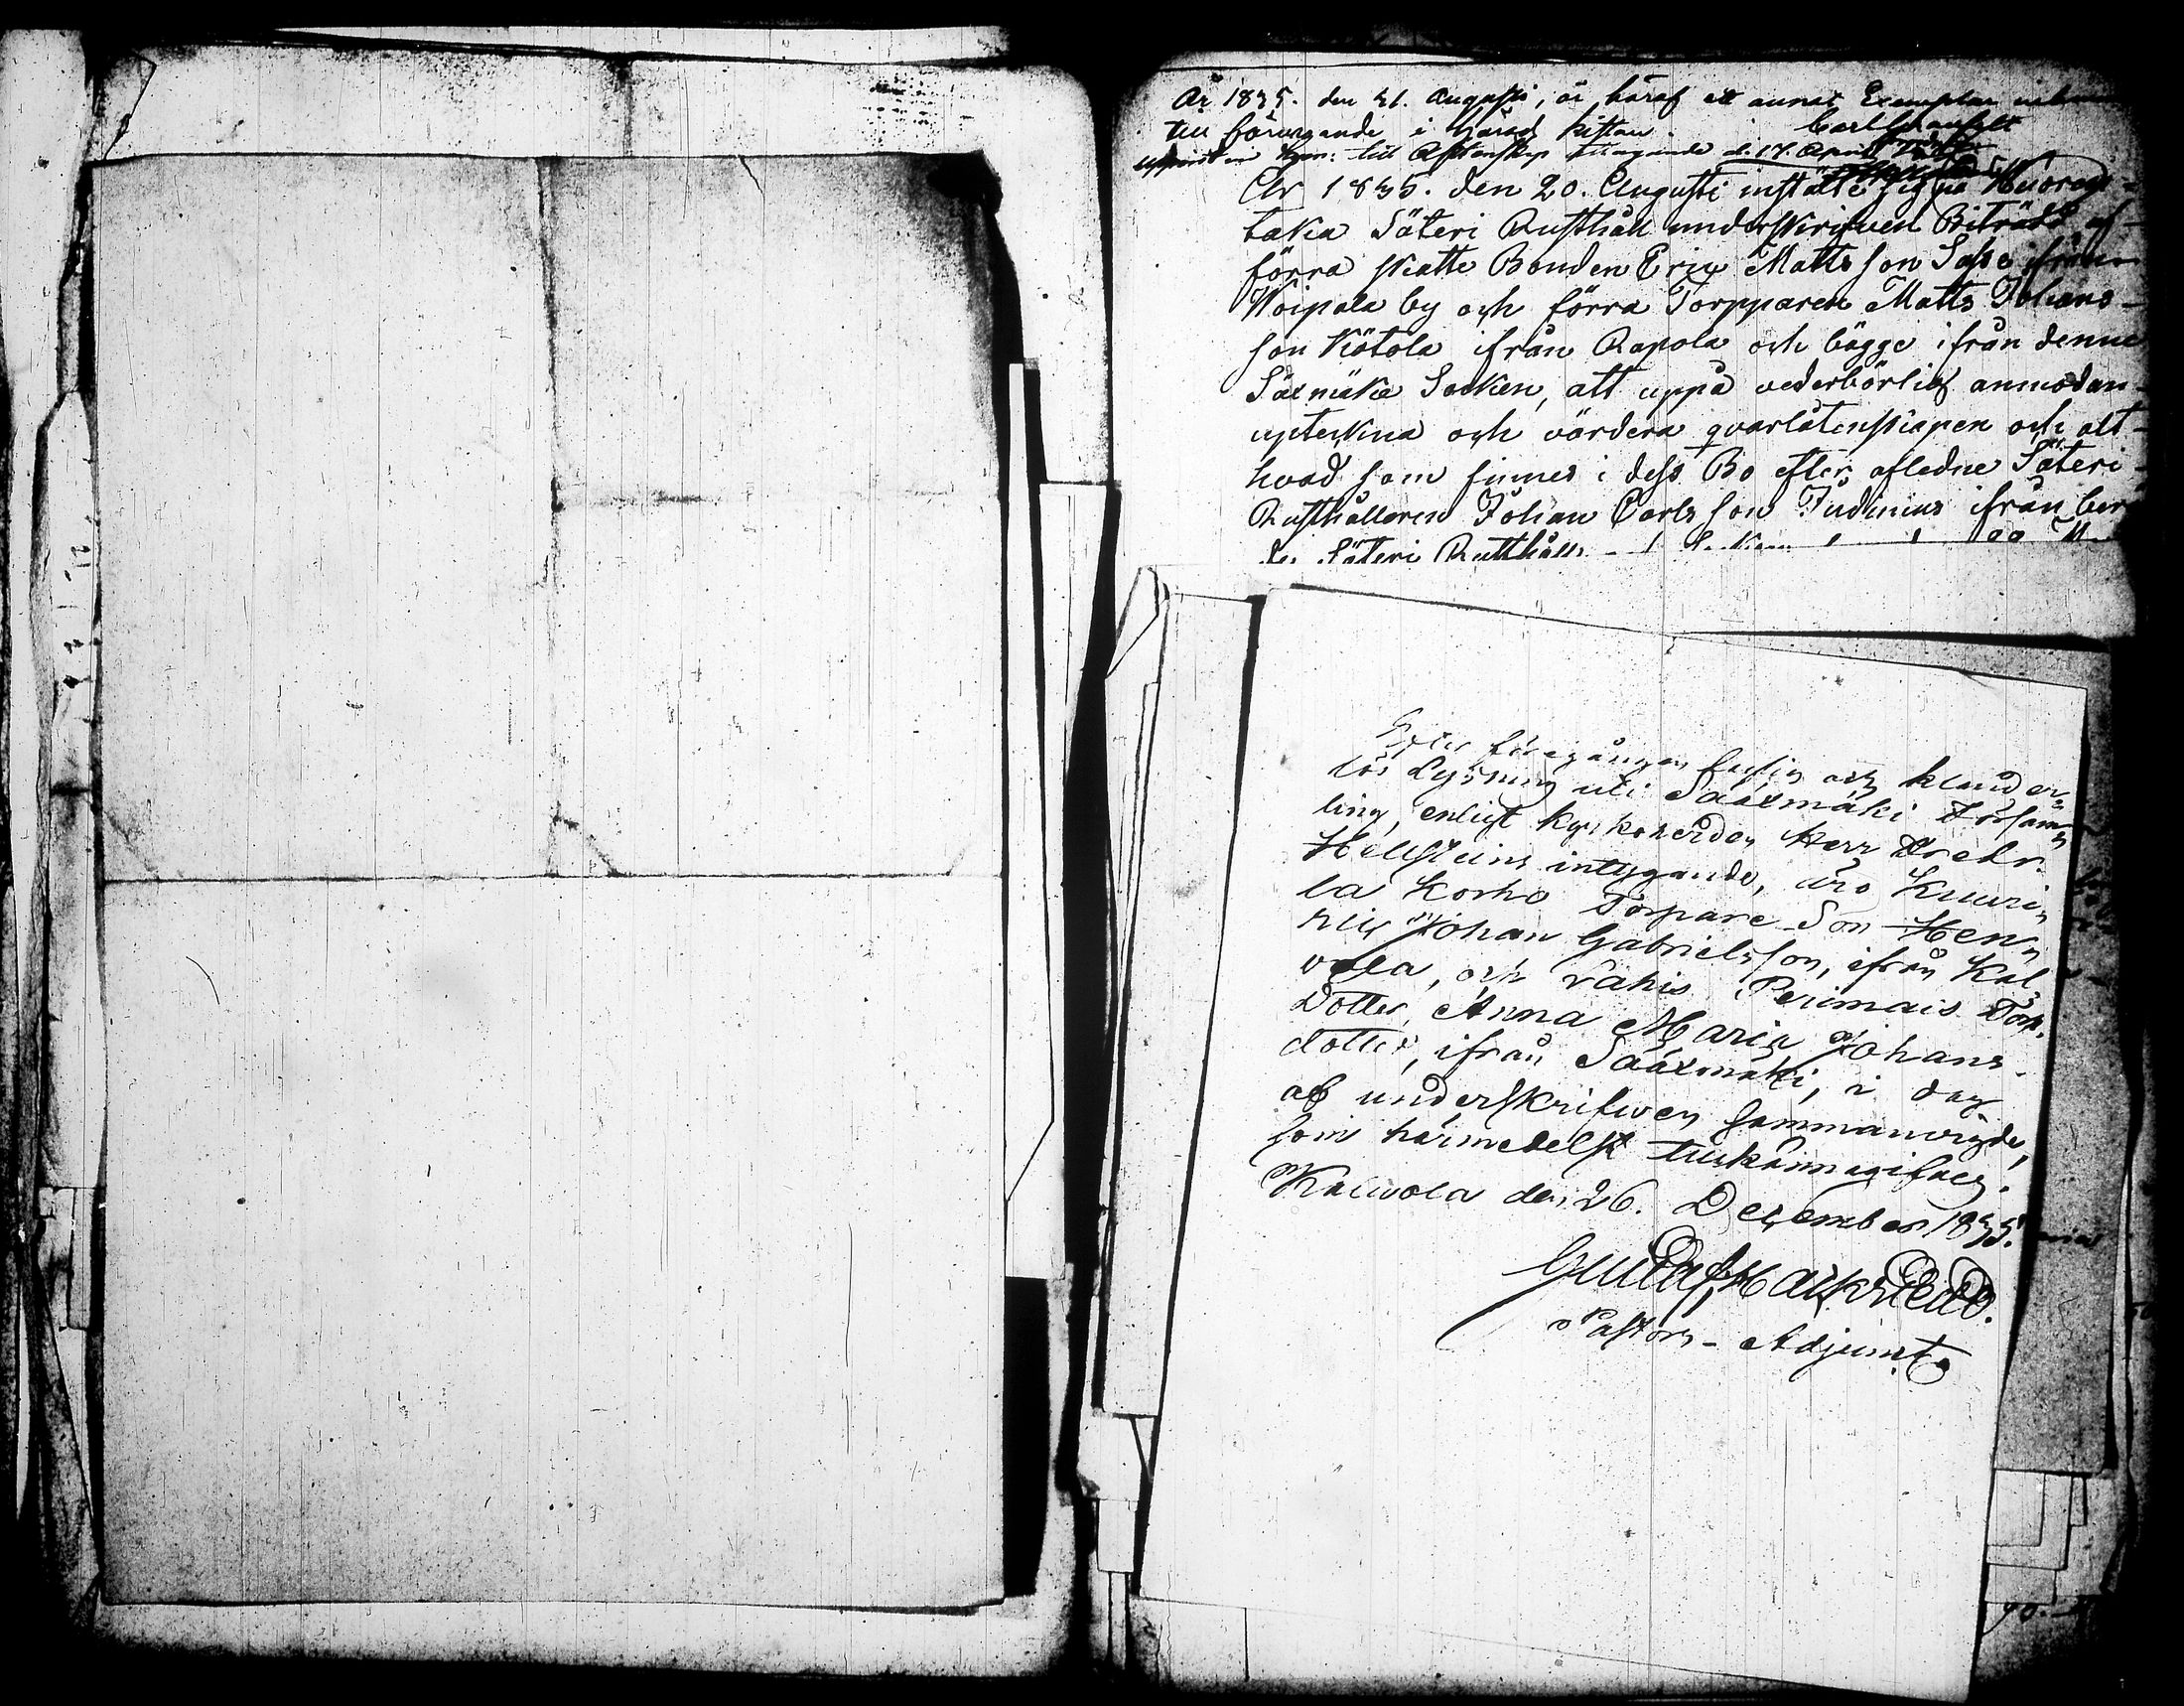 År 1835. den 21. Augusti, är häraf ett annat Exemplar
till förvarande i Härads kistan.
d. 17. April
År 1835. den 20. Augusti instälte sig på Huorof-
taka Säteri Rusthåll underskrifven Biträdd af
förra skatte Bonden Eric Mattsson Sasse ifrån
Woipala by och förra Torpparen Matts Johans-
son Kötola ifrån Rapola och bägge ifrån denne
Säxmäke Socken, att uppå vederbörlig anmodan
upteckna och värdera qvarlåtenskapen och alt
hvad som finnes i dess Bo efter afledne Säteri
Rusthållaren Johan Carlsson Judinius ifrån ber
de Säteri Rusthåll
Efter föregången laglig och klander-
lös Lysning uti Sääxmäki Försam-
ling, enligt Kyrkoherden Herr
Hellsteins intygande, äro Knuuri-
la Korho Torpare Son Hen-
ric Johan Gabrielsson, ifrån Kal-
vola, och Rahis Perimais Torp.
Dotter, Anna Maria Johans-
dotter, ifrån Sääxmäki, i dag
af underskrifwen sammanvigde,
som härmedelst tillkännagifves.
Kalvola den 26. December 1835.
Gustaf
Pastors-Adjunct.
90.